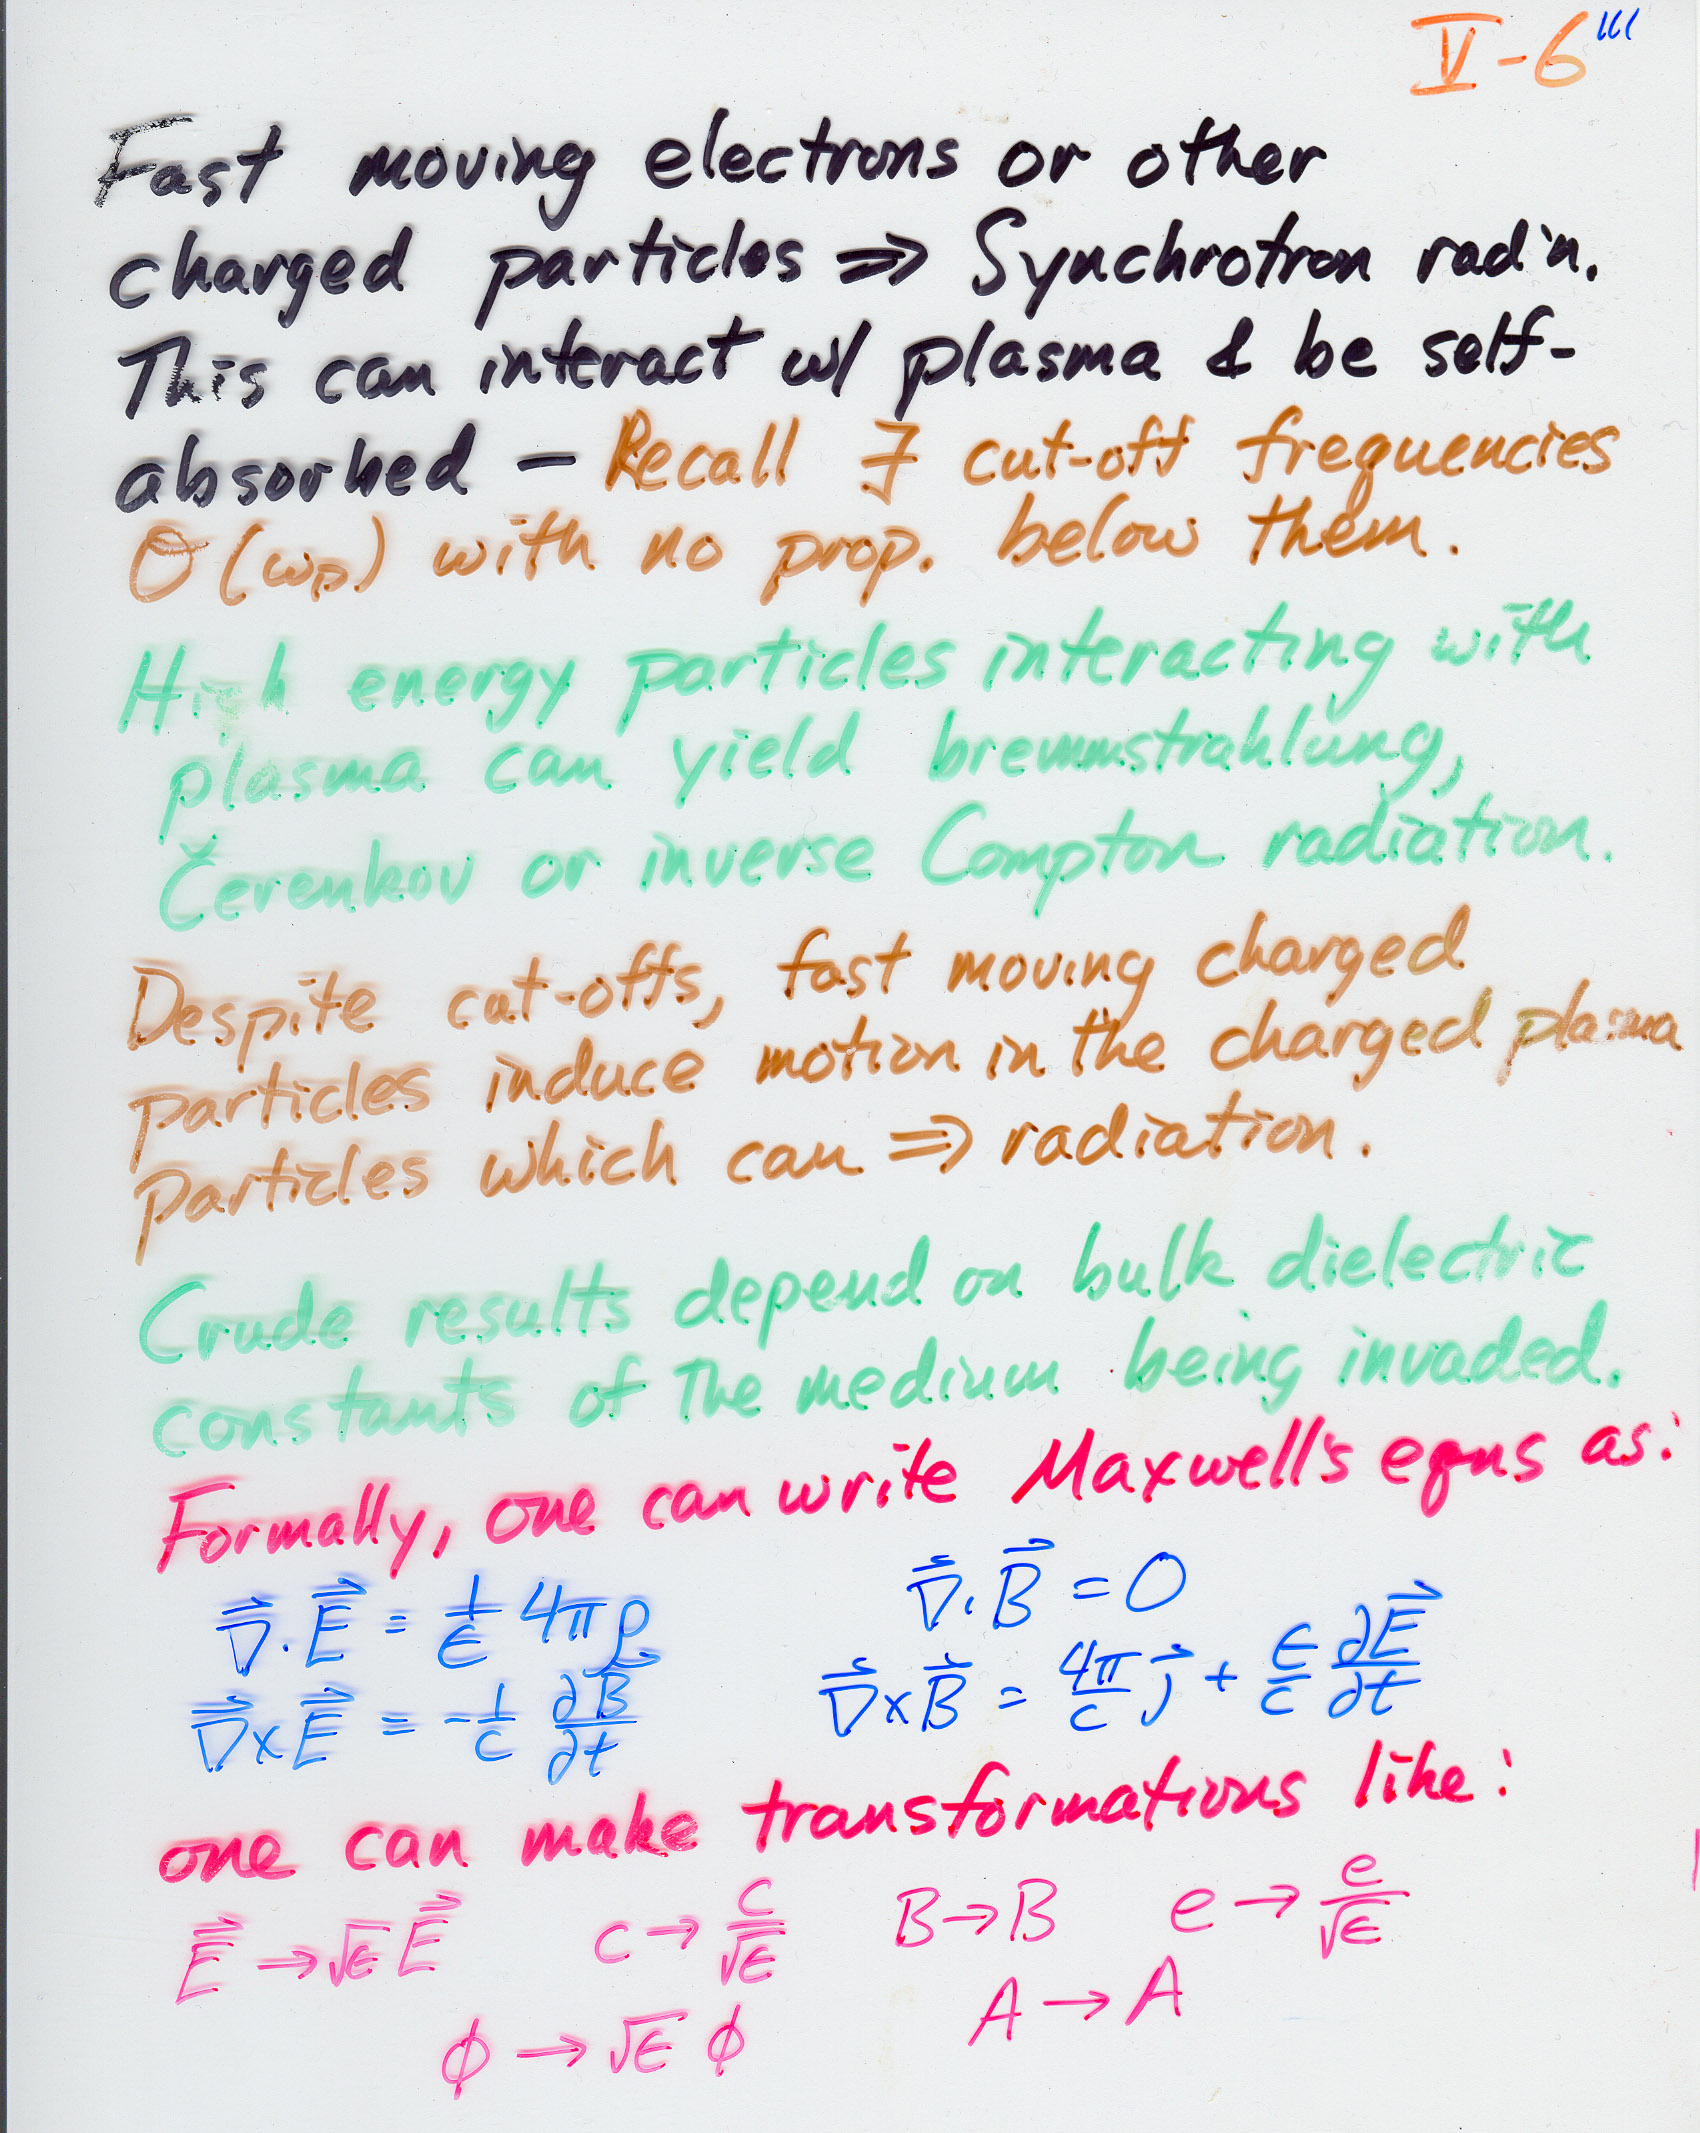 V-6'''
Fast moving electrons or other
charged particles ⇒ Synchrotron rad'n.
This can interact w/ plasma & be self-
absorbed – Recall ∃ cut-off frequencies
O(ωp) with no prop. below them.
High energy particles interacting with
plasma can yield bremmstrahlung,
Čerenkov or inverse Compton radiation.
Despite cut-offs, fast moving charged
particles induce motion in the charged plasma
particles which can ⇒ radiation.
Crude results depend on bulk dielectric
constants of the medium being invaded.
Formally, one can write Maxwell's eqns as:
∇⃗·E⃗ = 1/ϵ 4πρ ∇⃗·B⃗ = 0
∇⃗×E⃗ = -1/c ∂B⃗/∂t ∇⃗×B⃗ = 4π/c j⃗ + ϵ/c ∂E⃗/∂t
one can make transformations like:
E⃗ → √ϵ E⃗ c → c/√ϵ B → B e → e/√ϵ
ϕ → √ϵ ϕ A → A